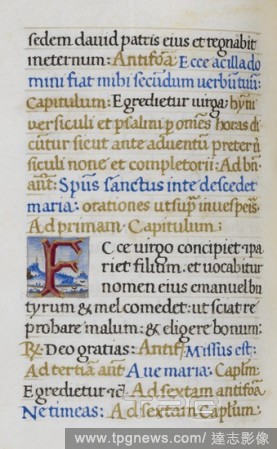 sedem david patris eius et regnabit
ineternum: Antifoa: Ecce ácilla do
mini fiat mihi secúndum verbũ tuũ:
Capitulum: Egredietur uirga: hỹni
versiculi et psalmi p omẽs horas di
cũtur sicut ante aduentũ preter ṽ
siculi none et completorii: Ad bñ
añt: Spũs sanctus in te descẽdet
maria: orationes ut sup̃ in uespeis:
Ad primam. Capitulum:
E C ce virgo concipiet & pa
riet filium. et uocabitur
nomen eius emanuel bu
tyrum & mel comedet: ut sciat re
probare malum: & eligere bonum:
R̃. Deo gratias: Antif̃. Missus est:
Ad tertiã añt̃ Aue maria: Caplm̃
Egredietur ut ĩ Ad sextam antifoã
Ne timeas: Ad sextam Caplum:
www.tpgnews.com / 達志影像